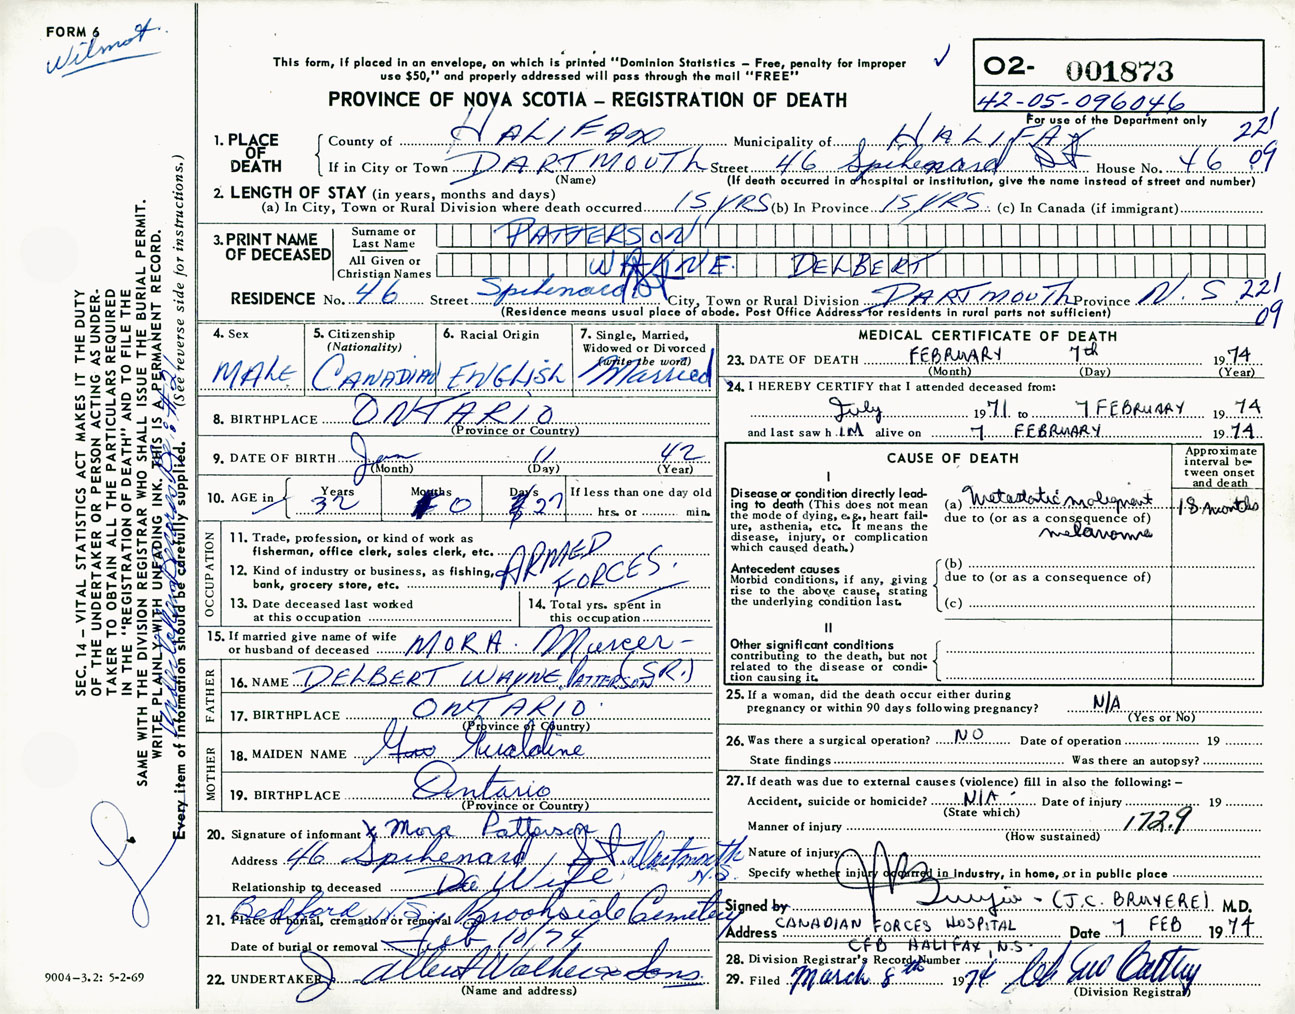 FORM 6
Wilmot
This form, if placed in an envelope, on which is printed "Dominion Statistics – Free, penalty for improper
use $50," and properly addressed will pass through the mail "FREE"
PROVINCE OF NOVA SCOTIA – REGISTRATION OF DEATH
02- 001873
42-05-096046
For use of the Department only
1. PLACE OF DEATH
County of HALIFAX Municipality of HALIFAX 221
If in City or Town DARTMOUTH Street 46 Spikenard St House No. 46 09
(Name) (If death occurred in a hospital or institution, give the name instead of street and number)
2. LENGTH OF STAY (in years, months and days)
(a) In City, Town or Rural Division where death occurred 15 YRS (b) In Province 15 YRS (c) In Canada (if immigrant)
3. PRINT NAME OF DECEASED
Surname or Last Name PATTERSON
All Given or Christian Names WAYNE DELBERT
RESIDENCE No. 46 Street Spikenard St City, Town or Rural Division DARTMOUTH Province N.S 221
(Residence means usual place of abode. Post Office Address for residents in rural parts not sufficient) 09
4. Sex MALE
5. Citizenship (Nationality) CANADIAN
6. Racial Origin ENGLISH
7. Single, Married, Widowed or Divorced (write the word) Married
8. BIRTHPLACE ONTARIO
(Province or Country)
9. DATE OF BIRTH Jan 11 42
(Month) (Day) (Year)
10. AGE in Years 32 Months 0 Days 27 If less than one day old
hrs. or min.
OCCUPATION
11. Trade, profession, or kind of work as
fisherman, office clerk, sales clerk, etc. ARMED
12. Kind of industry or business, as fishing,
bank, grocery store, etc. FORCES.
13. Date deceased last worked
at this occupation
14. Total yrs. spent in
this occupation
15. If married give name of wife
or husband of deceased MORA. Mercer-
FATHER
16. NAME DELBERT WAYNE PATTERSON (SR.)
17. BIRTHPLACE ONTARIO
(Province or Country)
MOTHER
18. MAIDEN NAME Geraldine
19. BIRTHPLACE Ontario
(Province or Country)
20. Signature of informant x Mora Patterson
Address 46 Spikenard St. Dartmouth N.S.
Relationship to deceased Wife
21. Place of burial, cremation or removal Bedford N.S. Brookside Cemetery
Date of burial or removal Feb 10/74
22. UNDERTAKER J Albert Walker & Sons.
(Name and address)
MEDICAL CERTIFICATE OF DEATH
23. DATE OF DEATH FEBRUARY 7th 1974
(Month) (Day) (Year)
24. I HEREBY CERTIFY that I attended deceased from:
July 1971 to 7 FEBRUARY 1974
and last saw h IM alive on 7 FEBRUARY 1974
CAUSE OF DEATH
Approximate interval between onset and death
I
Disease or condition directly leading to death (This does not
mean the mode of dying, e.g., heart failure, asthenia, etc. It means the
disease, injury, or complication
which caused death.)
(a) Metastatic malignant 18 months
due to (or as a consequence of)
melanoma
Antecedent causes
Morbid conditions, if any, giving
rise to the above cause, stating
the underlying condition last.
(b)
due to (or as a consequence of)
(c)
II
Other significant conditions
contributing to the death, but not
related to the disease or condition causing it.
25. If a woman, did the death occur either during
pregnancy or within 90 days following pregnancy? N/A
(Yes or No)
26. Was there a surgical operation? NO Date of operation 19
State findings Was there an autopsy?
27. If death was due to external causes (violence) fill in also the following: –
Accident, suicide or homicide? N/A Date of injury 19
(State which)
Manner of injury 172.9
(How sustained)
Nature of injury
Specify whether injury occurred in industry, in home, or in public place
Signed by (J.C. BRUYERE) M.D.
Address CANADIAN FORCES HOSPITAL Date 7 FEB 1974
CFB HALIFAX, N.S.
28. Division Registrar's Record Number
29. Filed March 8th 1974
(Division Registrar)
SEC. 14 – VITAL STATISTICS ACT MAKES IT THE DUTY
OF THE UNDERTAKER OR PERSON ACTING AS UNDERTAKER TO OBTAIN ALL THE PARTICULARS REQUIRED
IN THE "REGISTRATION OF DEATH" AND TO FILE THE
SAME WITH THE DIVISION REGISTRAR WHO SHALL ISSUE THE BURIAL PERMIT.
WRITE PLAINLY WITH UNFADING INK. THIS IS A PERMANENT RECORD.
Every item of Information should be carefully supplied. (See reverse side for instructions.)
9004-3.2: 5-2-69